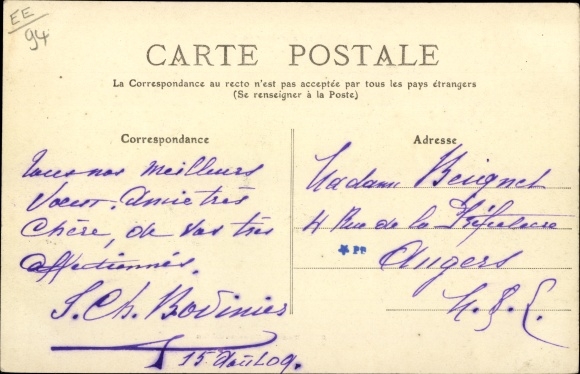 EE
94
CARTE POSTALE
La Correspondance au recto n'est pas acceptée par tous les pays étrangers
(Se renseigner à la Poste)
Correspondance
Tous nos meilleurs
vœux, amie très
chère, de vos très
affectionnés.
S. Ch. Bodinier
15 Août 09.
Adresse
Madame Beignet
4 Rue de la Préfecture
PP
Angers
M. & L.